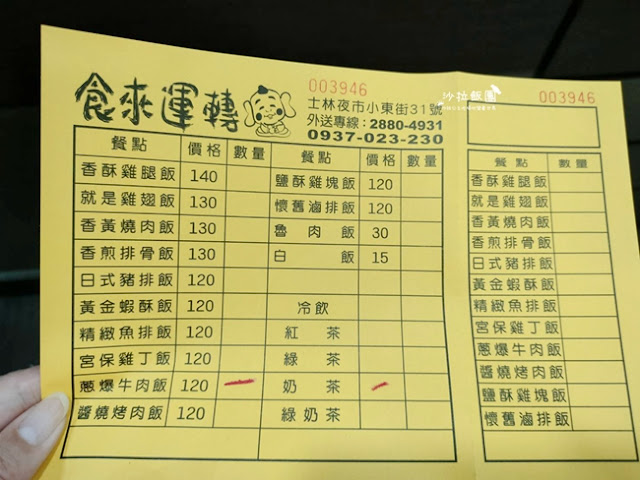 食來運轉
003946
士林夜市小東街31號
外送專線：2880-4931
0937-023-230
沙拉飯團
003946
餐點 價格 數量 餐點 價格 數量
香酥雞腿飯 140 鹽酥雞塊飯 120
就是雞翅飯 130 懷舊滷排飯 120
香黃燒肉飯 130 魯肉飯 30
香煎排骨飯 130 白飯 15
日式豬排飯 120
黃金蝦酥飯 120 冷飲
精緻魚排飯 120 紅茶
宮保雞丁飯 120 綠茶
蔥爆牛肉飯 120 奶茶
醬燒烤肉飯 120 綠奶茶
餐點 數量
香酥雞腿飯
就是雞翅飯
香黃燒肉飯
香煎排骨飯
日式豬排飯
黃金蝦酥飯
精緻魚排飯
宮保雞丁飯
蔥爆牛肉飯
醬燒烤肉飯
鹽酥雞塊飯
懷舊滷排飯